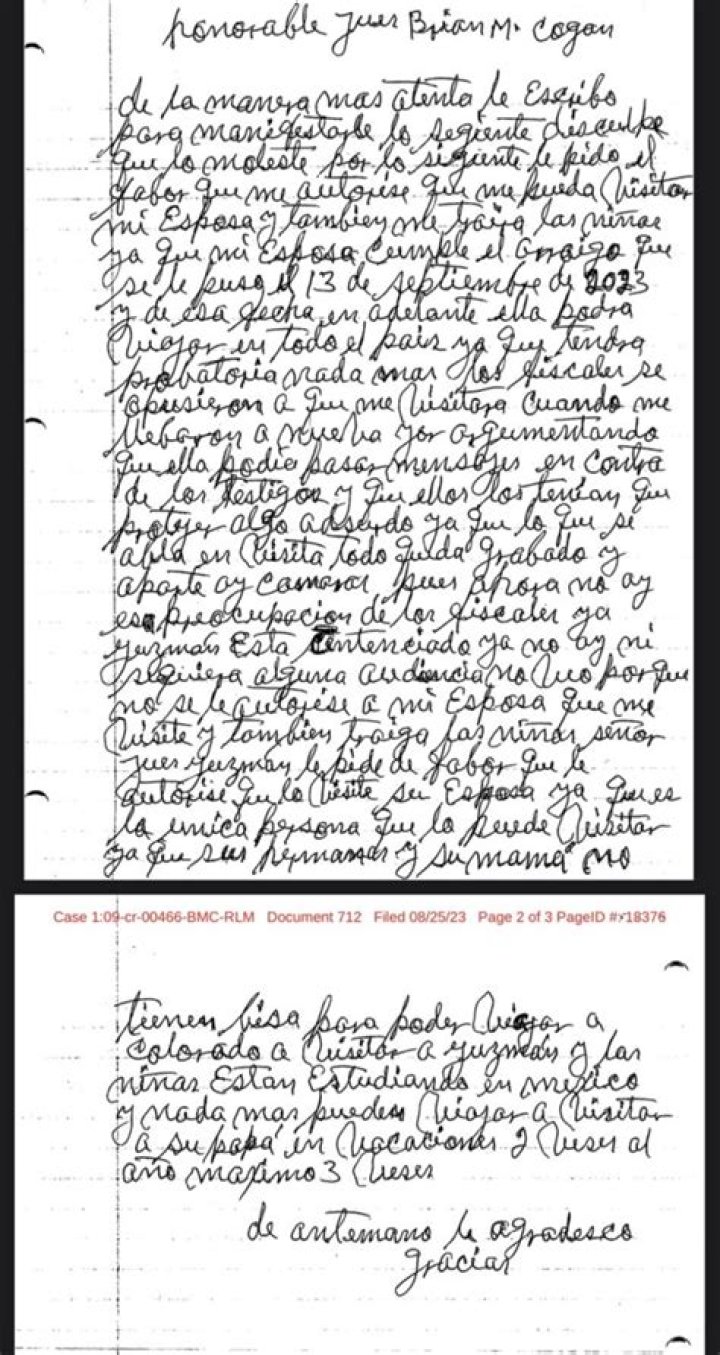 honorable Jues Brian M. Cogan
de la manera mas atenta le Escribo
para manifestarle lo segiente disculpe
que lo moleste por lo sigiente le pido el
fabor que me autorise que me pueda Visitar
mi Esposa y tambien me traiga las niñas
ya que mi Esposa Cumple el arraigo que
se le puso el 13 de septiembre de 2023
y de esa fecha en adelante ella podra
Viajar en todo el pais ya que tendra
probatoria nada mas los fiscales se
opusieron a que me Visitara Cuando me
llebaron a nueva yor argumentando
que ella podia pasar mensajes en contra
de los testigos y que ellos los tenian que
protejer algo adsurdo ya que lo que se
abla en Visita todo queda grabado y
aparte ay camaras pues ahora no ay
esa preocupacion de los fiscales ya
guzman Esta Centenciado ya no ay ni
sequiera alguna audiencia no Veo por que
no se le autorise a mi Esposa que me
Visite y tambien traiga las niñas señor
jues guzman le pide de fabor que le
autorise que lo Visite su Esposa ya que es
la unica persona que lo puede Visitar
ya que sus hermanas y su mamá no
Case 1:09-cr-00466-BMC-RLM Document 712 Filed 08/25/23 Page 2 of 3 PageID #: 18376
tienen bisa para poder Viajar a
colorado a Visitar a guzmán y las
niñas Estan Estudiando en mexico
y nada mas pueden Viajar a Visitar
a su papá en Vacaciones 2 Veses al
año maximo 3 Veses
de antemano le agradesco
gracias